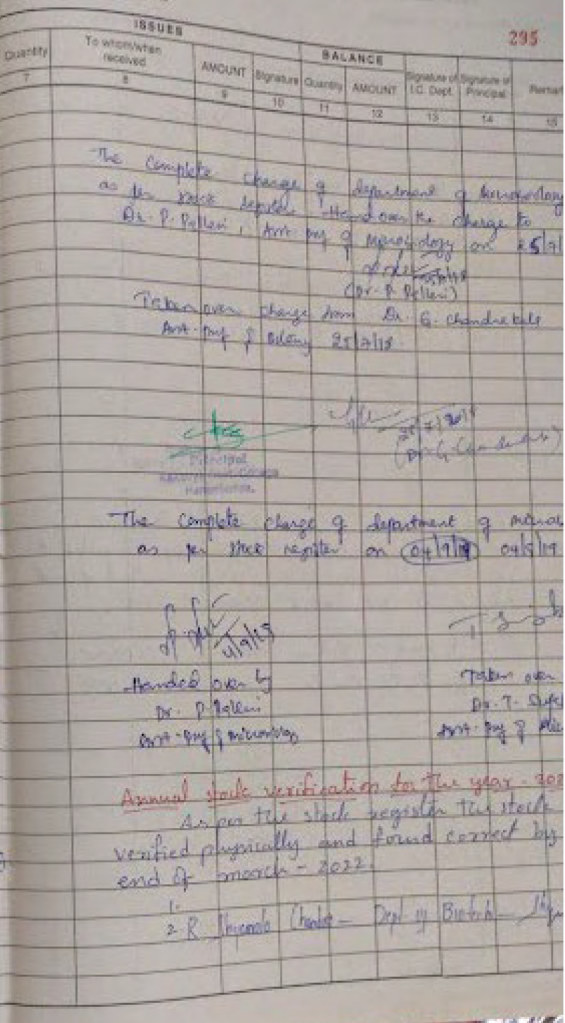 295
ISSUES
BALANCE
Quantity To whom/when received AMOUNT Signature Quantity AMOUNT Signature of I.C. Dept. Signature of Principal Remar
7 8 9 10 11 12 13 14 15
The Complete charge of department of
as per stock register Hand over the charge to
Dr. P. Palleni, Asst. Prof of Microbiology on 25/7/
(Dr. P. Palleni)
Taken over charge from Dr. G. Chandrakala
Asst. Prof of Botany 25/7/18
Principal
The Complete charge of department of
as per stock register on 04/9/19 04/9/19
4/9/19
Handed over by
Dr. P. Palleni
Asst. Prof of Microbiology
Taken over
Dr. T.
Asst. Prof of Mic
Annual stock verification for the year - 202
As per the stock register the stock
verified physically and found correct by
end of march - 2022.
1.
2. R Dept of Biotech